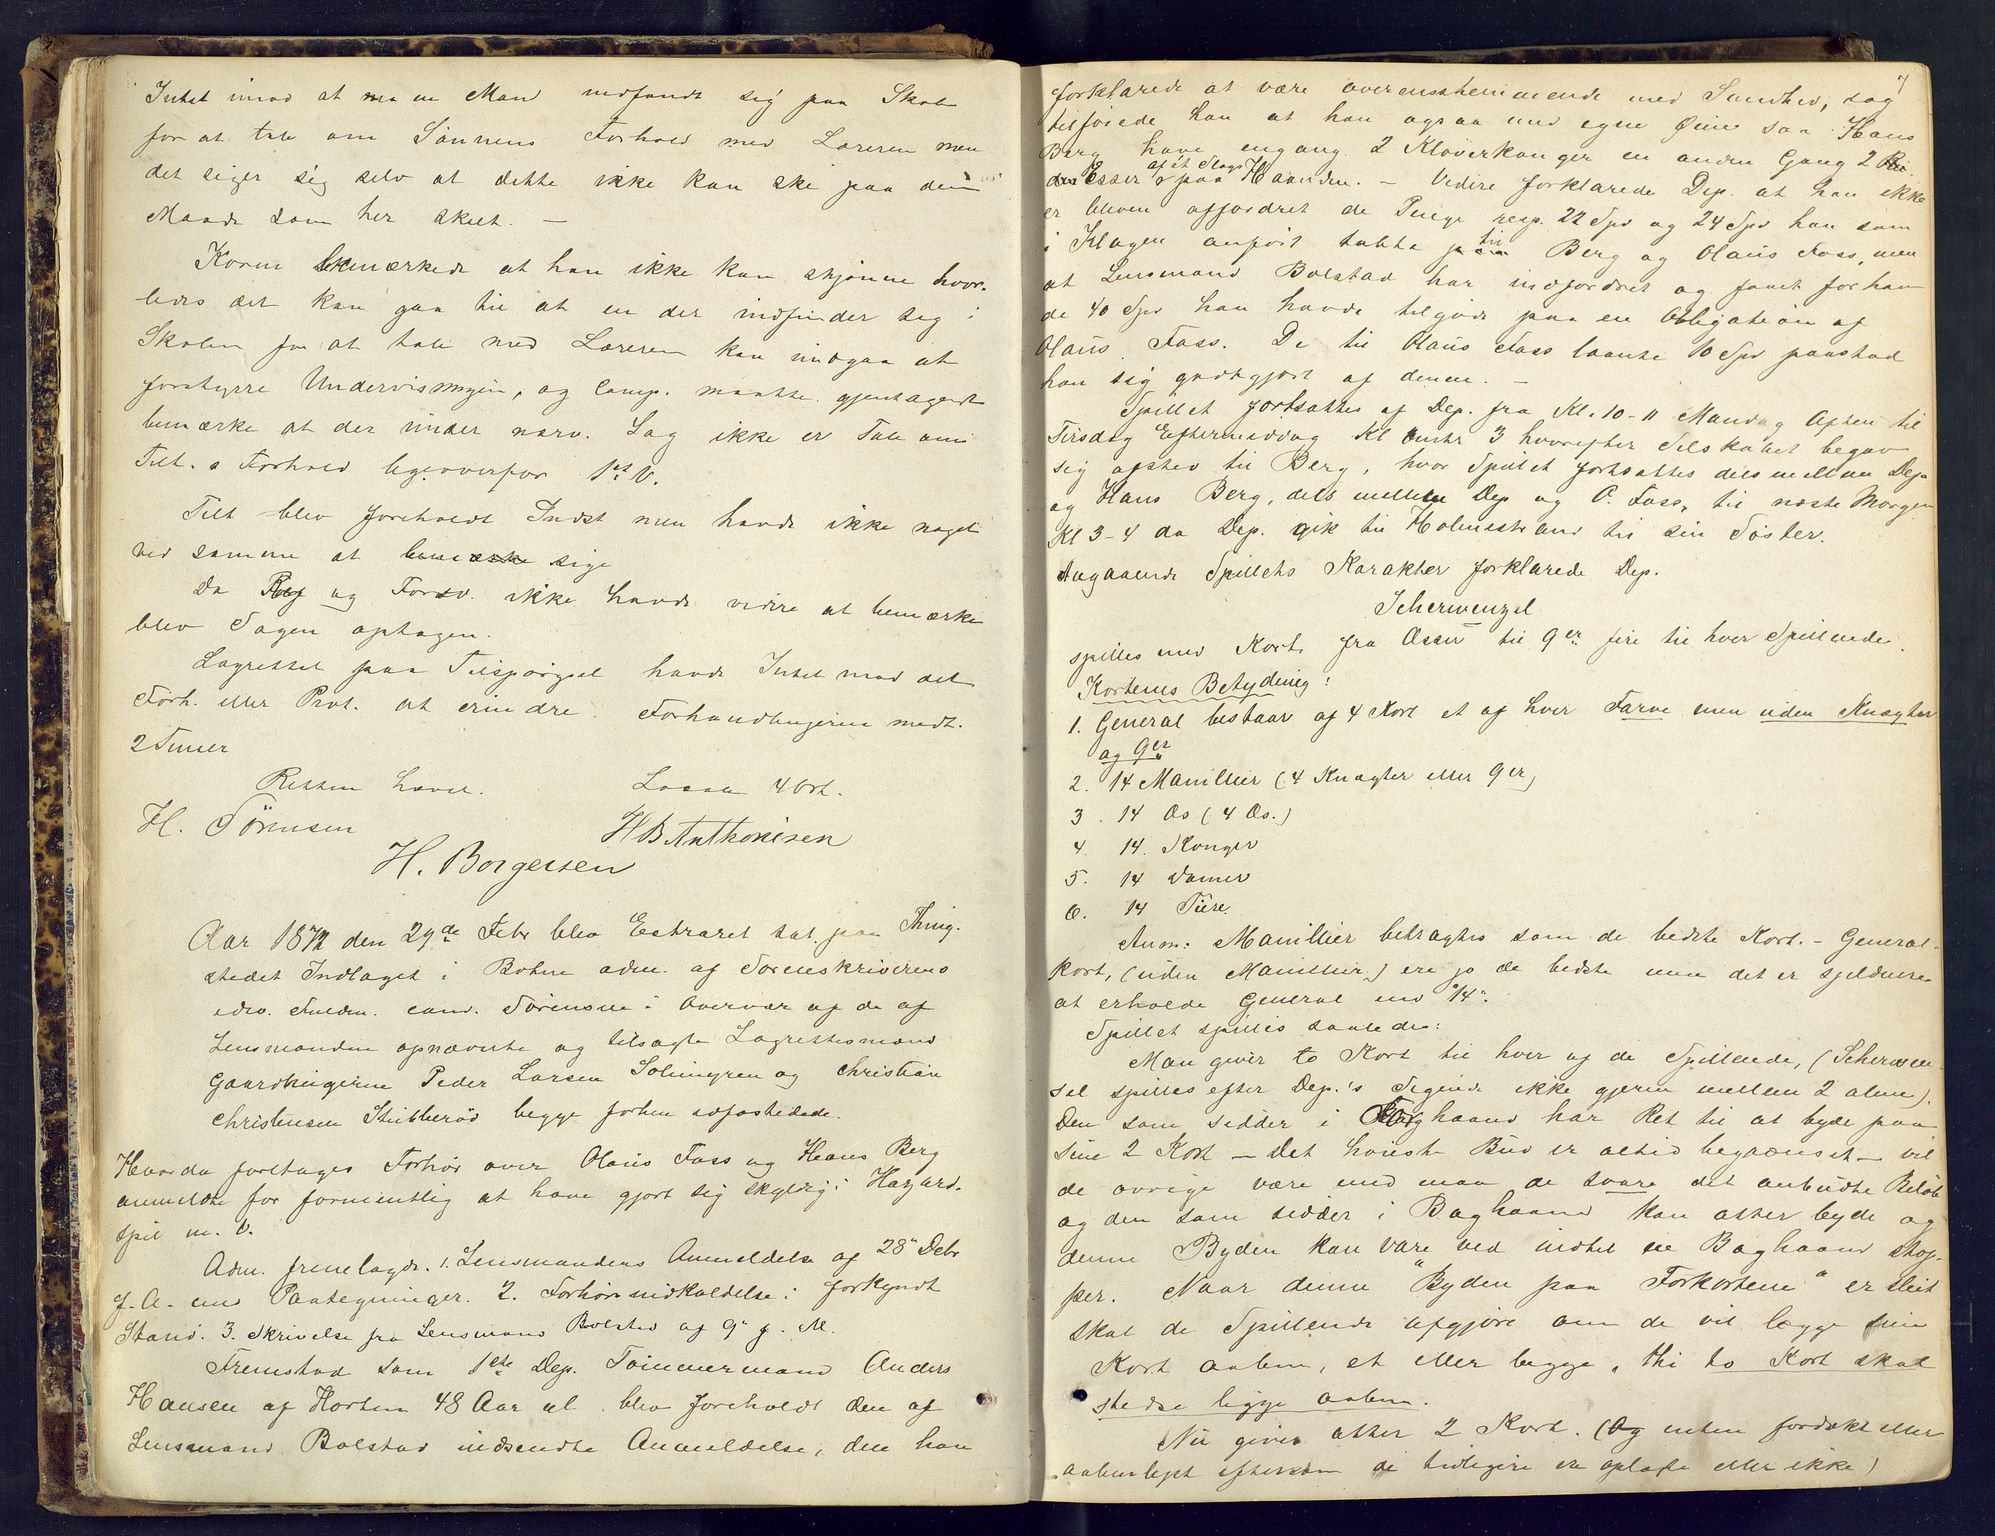 Intet imod at en Mand indfandt sig paa Skolen
for at tale om Sønnens Forhold med Læreren men
det siger sig selv at dette ikke kan ske paa den
Maade som her skeet. —
Korm bemærkede at han ikke kan skjønne hvor-
ledes det kan gaa til at en der indfinder sig i
Skolen for at tale med Læreren kan undgaa at
forstyrre Undervisningen, og Comp. maatte gjentagende
bemærke at der under nærv. Sag ikke er Tale om
Tilt.s Forhold ligeoverfor 1st V.
Tilt blev foreholdt Indst men havde ikke noget
ved samme at bemærke sige
Da Ref og Forsv. ikke havde videre at bemærke
blev Sagen optagen.
Lagrettet paa Tilspørgsel havde Intet mod det
Forh. eller Prot. at erindre. Forhandlingerne medt.
2 Timer
Retten hævet. Løssn 4 Ort.
H. Sörensen HBAnthonisen
H. Borgersen
Aar 1872 den 29de Febr blev Extraret sat paa Thing-
stedet Indlaget i Botne adm. af Sorenskriverens
edsv. Fuldm. cand. Sörensen i Overvær af de af
Lensmanden opnævnte og tilsagte Lagrettesmænd
Gaardbrugerne Peder Larsen Solimyren og Christian
Christensen Stubberød begge forhen edfæstede.
Hvorda foretages Forhör over Olaus Foss og Hans Berg
anmeldte for formentlig at have gjort sig skyldig i Hazard-
spil m. V.
Adm. fremlagde. 1. Lensmandens Anmeldelse af 28" Debr
f. A. med Paategninger. 2. Forhörsindkaldelse i forkyndt
Stand. 3. Skrivelse fra Lensmand Bolstad af 9" f. M.
Fremstod som 1ste Dep. Tömmermand Anders
Hansen af Horten 48 Aar al. blev foreholdt den af
Lensmand Bolstad indsendte Anmeldelse, den han
7
forklarede at være overensstemmende med Sandhed, dog
tilføiede han at han ogsaa med egne Öine saa Hans
Berg have engang 2 Kløverkonger en anden Gang 2
Esser af et Slags paa Haanden. — Videre forklarede Dep. at han ikke
er bleven affordret de Penge resp. 22 Spd og 24 Spd han som
i Klagen anført tabte til Berg og Olaus Foss, men
at Lensmand Bolstad har indfordret og faaet for ham
de 40 Spd han havde tilgode paa en Obligation af
Olaus Foss. De til Olaus Foss laante 10 Spd paastod
han sig godtgjort af denne. —
Spillet fortsattes af Dep. fra Kl. 10-11 Mandag Aften til
Tirsdag Eftermiddag Kl omtr 3 hvorefter Selskabet begav
sig afsted til Berg, hvor Spillet fortsattes dels mellem Dep
og Hans Berg, dels mellem Dep og O. Foss, til næste Morgen
Kl 3-4 da Dep. gik til Holmestrand til sin Söster.
Angaaende Spillets Karakter forklarede Dep.
Scherwenzel
spilles med Kort fra Esser til 9er fire til hver Spillende.
Kortenes Betydning:
1. General bestaar af 4 Kort et af hver Farve men uden Knægter
og 9er
2. 14 Manillier (4 Knægter eller 9er)
3. 14 Es (4 Es.)
4. 14. Konger
5. 14 Damer
6. 14 Tiere.
Anm: Manillier betragtes som de bedste Kort. — General-
kort, (uden Manillier) ere jo de bedste men det er sjeldnere
at erholde General end "14".
Spillet spilles saaledes:
Man giver to Kort til hver af de Spillende, (Scherwen-
sel spilles efter Dep.'s Sigende ikke gjerne mellem 2 alene).
Den som sidder i Forhaand har Ret til at byde paa
sine 2 Kort — Det høieste Bud er altid begrænset — vil
de øvrige være med maa de svare det anbudte Beløb
og den som sidder i Baghaand kan atter byde og
denne Byden kan vare ved indtil en Baghaand stop-
per. Naar denne "Byden paa Forkortene" er sluit
skal de Spillende afgjøre om de vil lægge sine
Kort aabne, et eller begge, thi to Kort skal
stedse ligge aabne.
Nu gives atter 2 Kort. (Og enten fordækt eller
aabenlyst eftersom de tidligere er oplagte eller ikke)